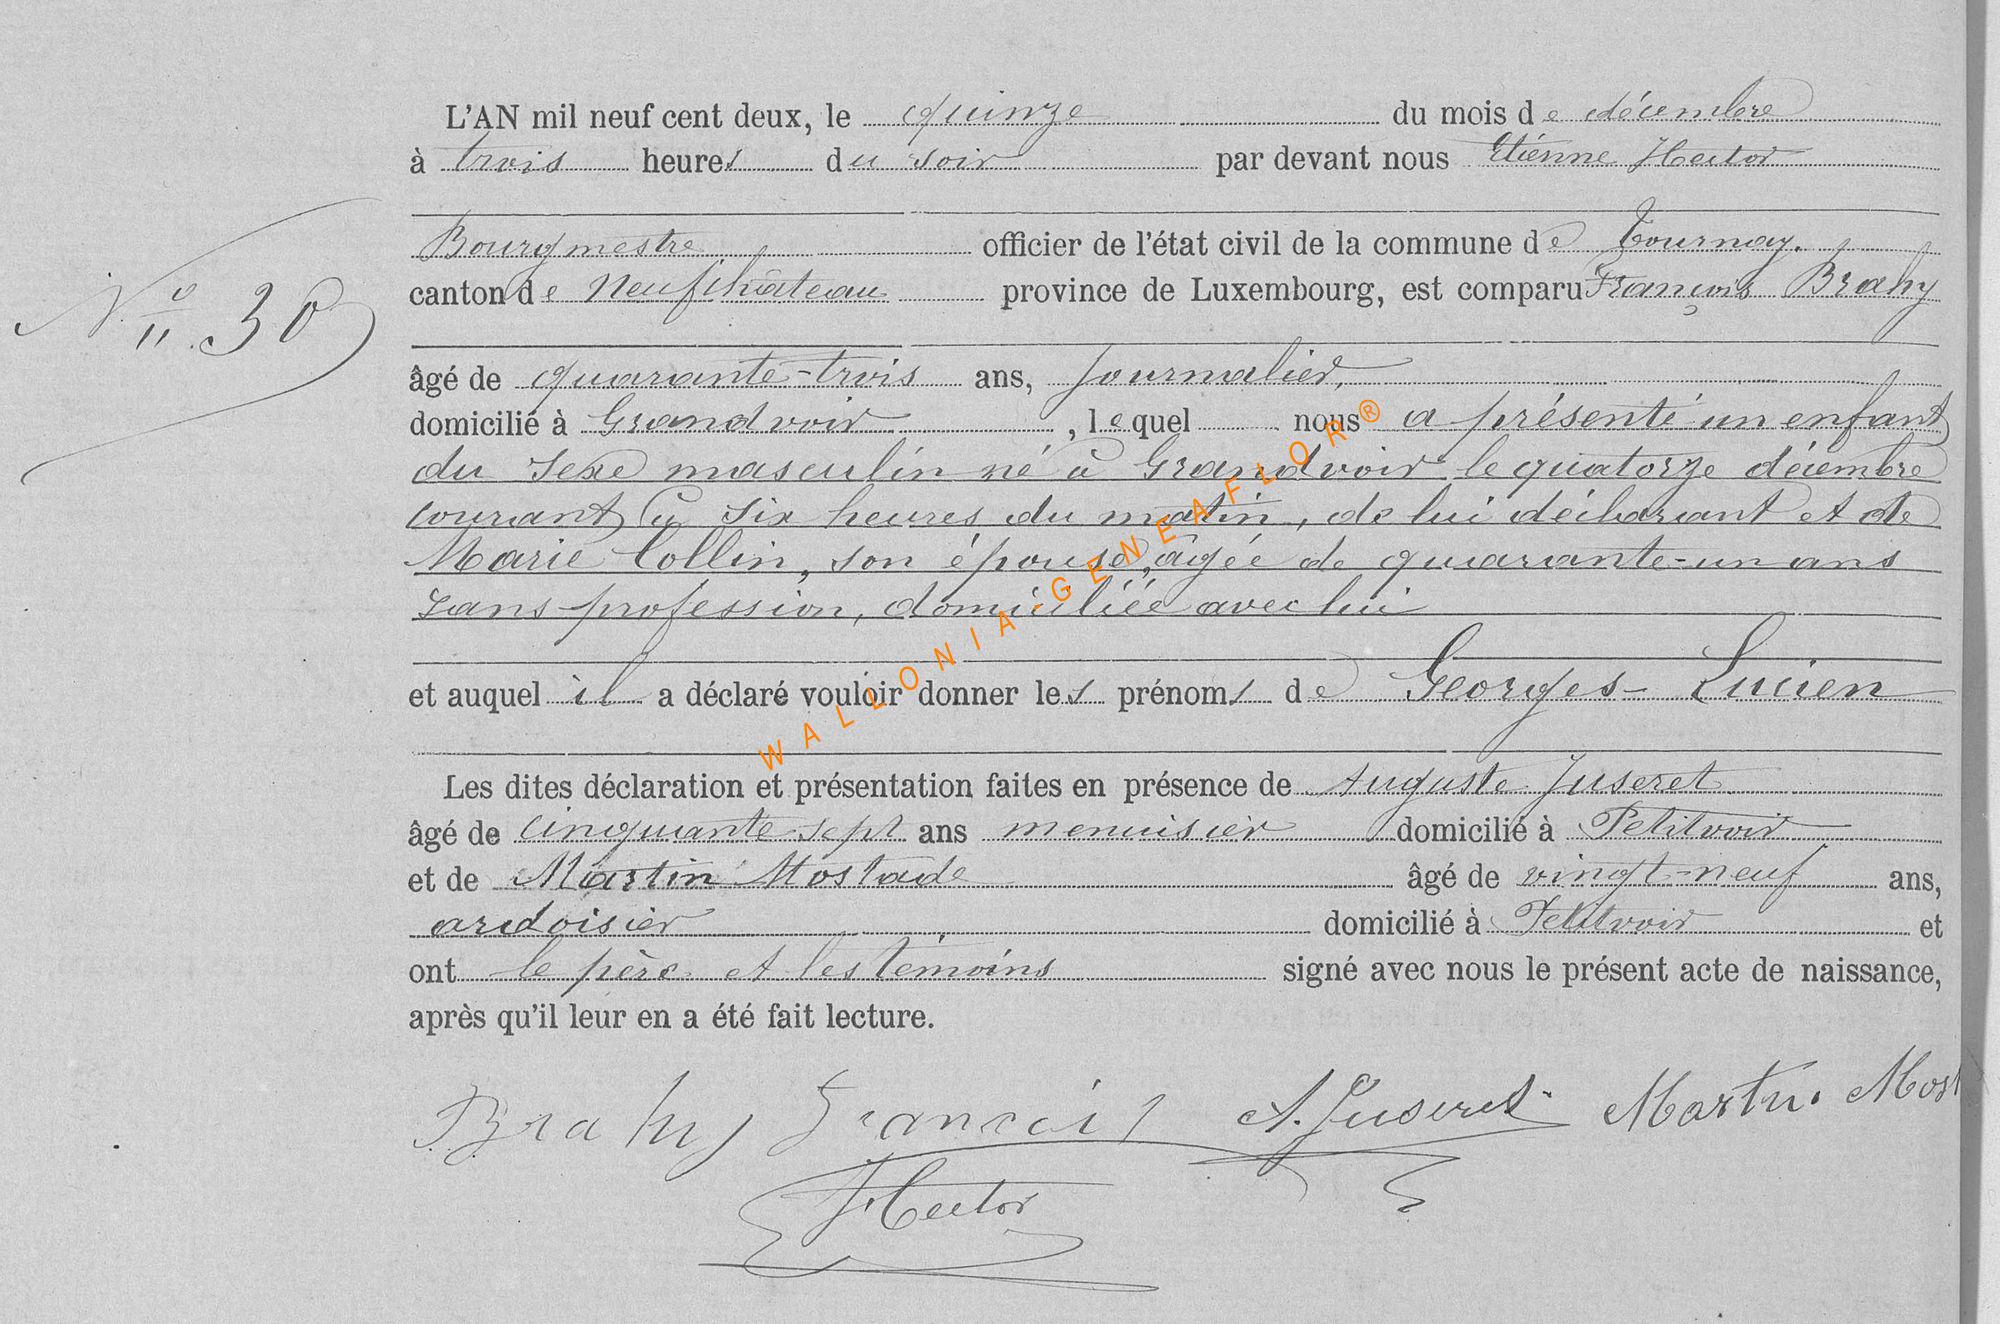 L'AN mil neuf cent deux, le quinze du mois de décembre
à trois heures du soir par devant nous Etienne Hector
Bourgmestre officier de l'état civil de la commune de Tournay.
canton de Neufchâteau province de Luxembourg, est comparu François Brahy
N° 30
âgé de quarante-trois ans, journalier,
domicilié à Grandvoir, lequel nous a présenté un enfant
du sexe masculin né à Grandvoir le quatorze décembre
courant à six heures du matin, de lui déclarant et de
Marie Collin, son épouse, âgée de quarante-un ans
sans profession, domiciliée avec lui
et auquel il a déclaré vouloir donner les prénoms de Georges-Lucien
Les dites déclaration et présentation faites en présence de Auguste Juseret
âgé de cinquante sept ans menuisier domicilié à Petitvoir
et de Martin Mostade âgé de vingt-neuf ans,
ardoisier domicilié à Petitvoir et
ont le père et les témoins signé avec nous le présent acte de naissance,
après qu'il leur en a été fait lecture.
Brahy Francois A. Juseret Martin Most
Hector
WALLONIA-GENEAFLOR®